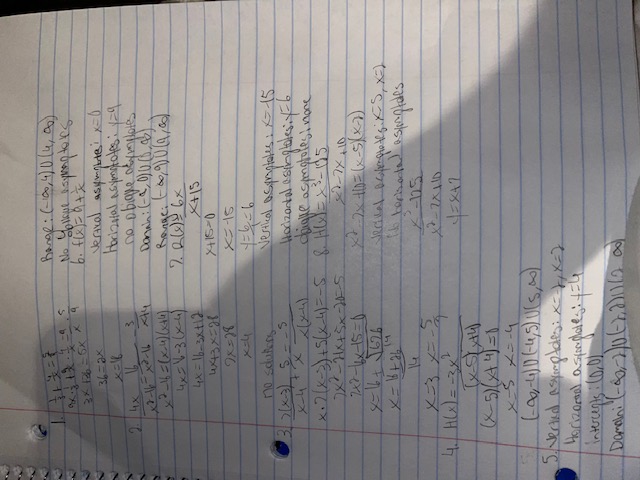 1. 1/3 + 4/x = 5/9
3x + 36 = 5x
36 = 2x
x = 18
2. 4x/x²-16 = 16/x²-16 - 3/x+4
x²-16 = (x-4)(x+4)
4x = 16-3(x-4)
4x = 16-3x+12
4x+3x = 28
7x = 28
x = 4
no solution
3. 7(x-3)/x-4 + 5/x = -5/x(x-4)
x·7(x-3)+5(x-4) = -5
7x²-21x+5x-20 = -5
7x²-16x-15 = 0
x = 16 ± √676 / 14
x = 16 ± 26 / 14
x = 3 x = -5/7
4. H(x) = -3x² / (x-5)(x+4)
(x-5)(x+4) = 0
x = 5 x = -4
(-∞,-4)∪(-4,5)∪(5,∞)
5. Vertical asymptotes: x=-2, x=2
Horizontal asymptotes: y=4
intercepts: (0,0)
Domain: (-∞,-2)∪(-2,2)∪(2,∞)
Range: (-∞,4)∪(4,∞)
No oblique asymptotes
6. f(x) = 9 + 1/x
Vertical asymptote: x=0
Horizontal asymptotes: y=9
no oblique asymptotes
Domain: (-∞,0)∪(0,∞)
Range: (-∞,9)∪(9,∞)
7. R(x) = 6x / x+15
x+15 = 0
x = -15
y = 6/1 = 6
Vertical asymptotes: x=-15
Horizontal asymptotes: y=6
oblique asymptotes: none
8. H(x) = x³-125 / x²-7x+10
x²-7x+10 = (x-5)(x-2)
Vertical asymptotes: x=5, x=2
No horizontal asymptotes
x³-125 / x²-7x+10
y = x+7